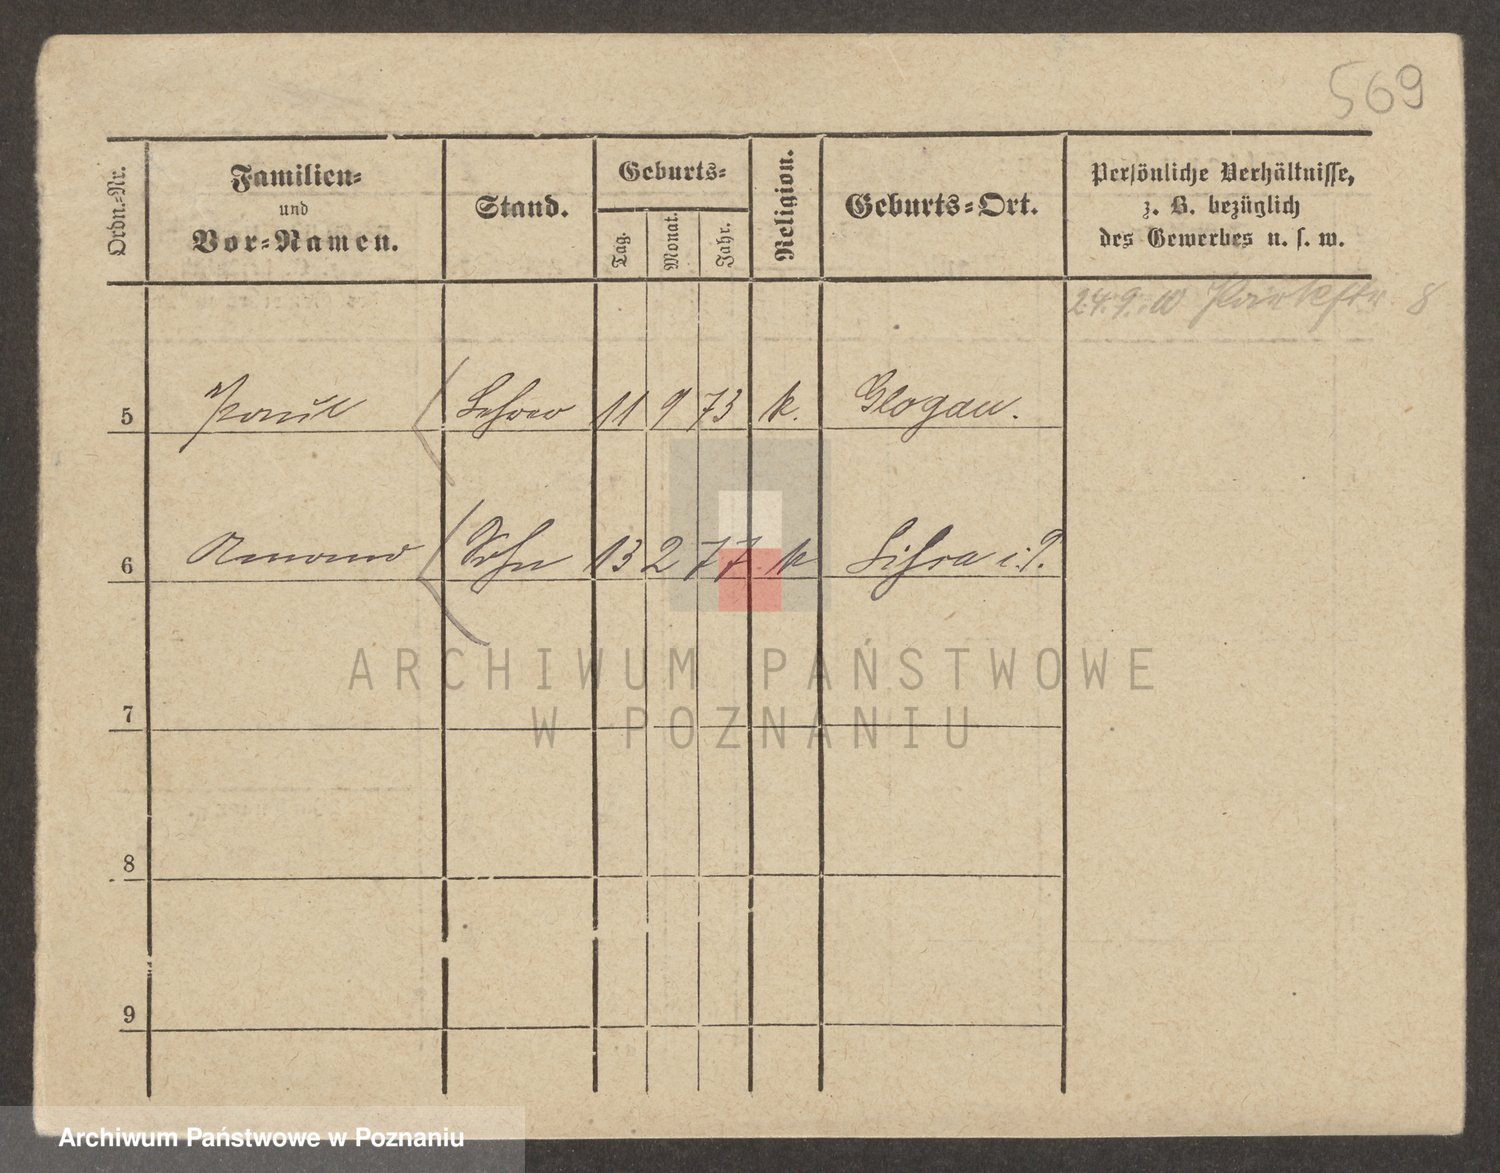 569
Ordn.-Nr.
Familien-
und
Vor-Namen.
Stand.
Geburts-
Tag.
Monat.
Jahr.
Religion.
Geburts-Ort.
Persönliche Verhältnisse,
z. B. bezüglich
des Gewerbes u. s. w.
24.9.00 Parkstr. 8
5 Paul Lehrer 11 9 73 k. Glogau.
6 Amand Sohn 13 2 77. k
7
8
9
ARCHIWUM PAŃSTWOWE
W POZNANIU
Archiwum Państwowe w Poznaniu